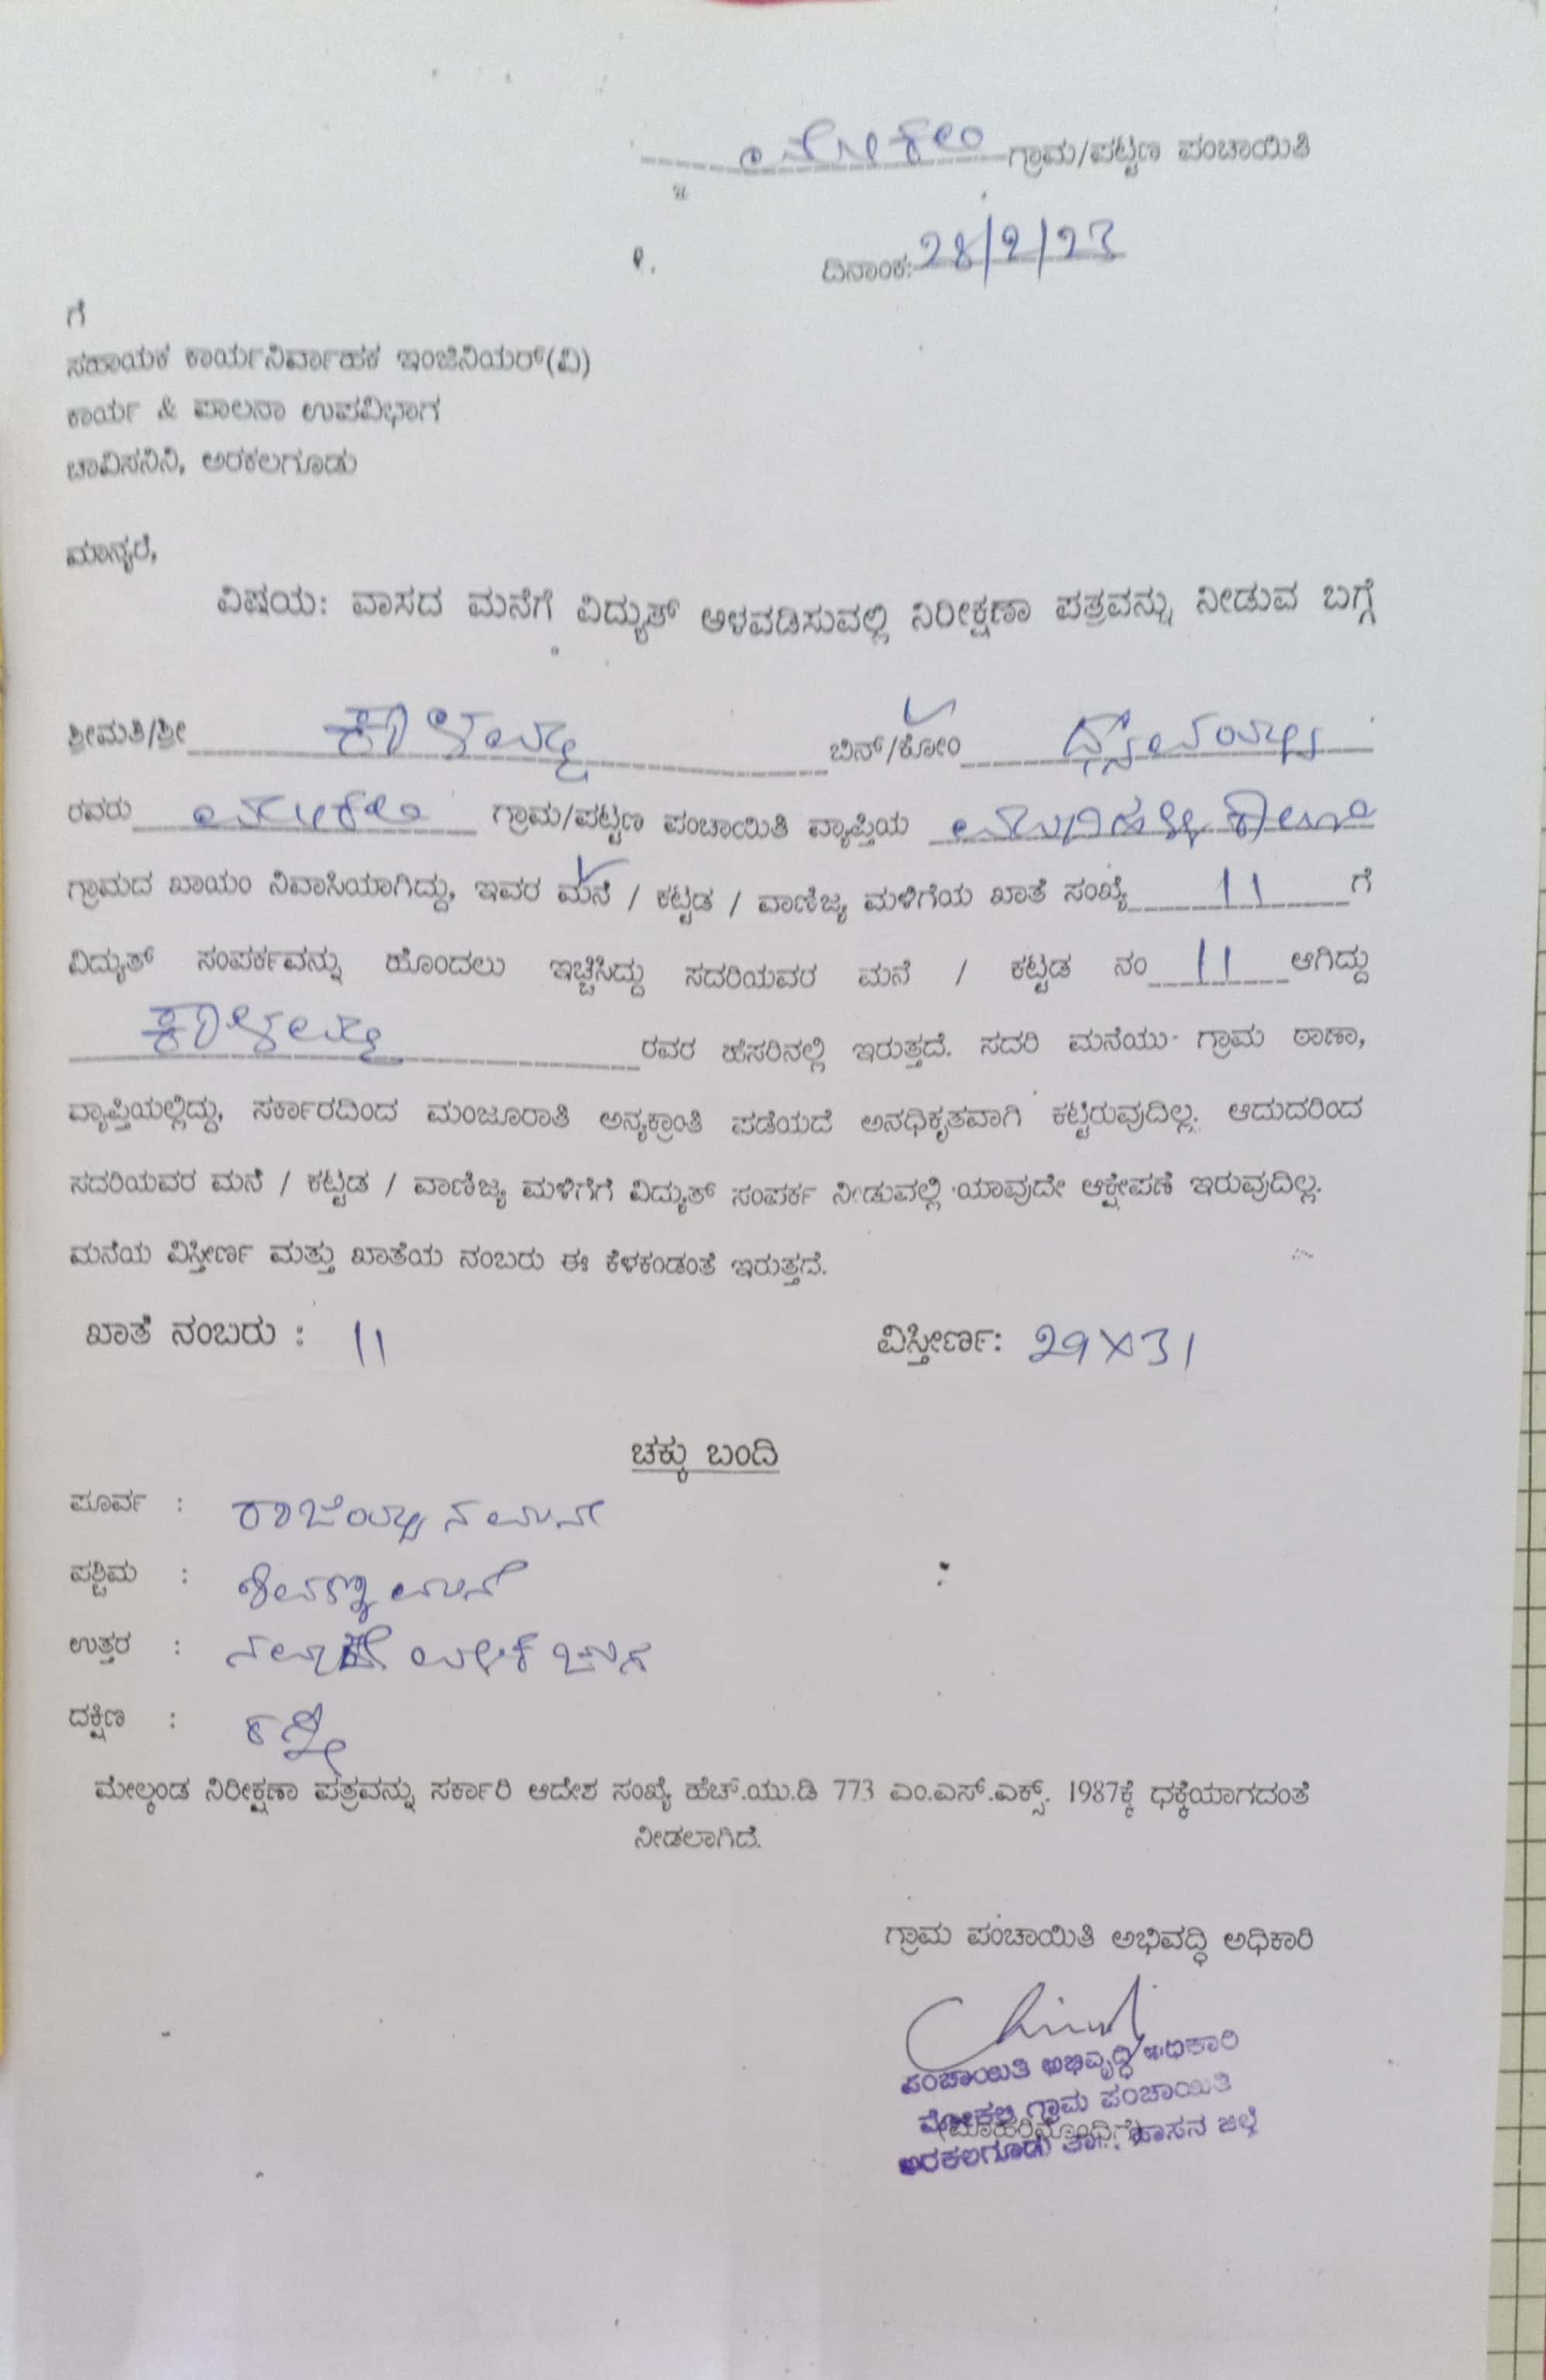 ಗ್ರಾಮ/ಪಟ್ಟಣ ಪಂಚಾಯಿತಿ
ದಿನಾಂಕ: 28/2/23
ಗೆ
ಸಹಾಯಕ ಕಾರ್ಯನಿರ್ವಾಹಕ ಇಂಜಿನಿಯರ್(ವಿ)
ಕಾರ್ಯ & ಪಾಲನಾ ಉಪವಿಭಾಗ
ಚಾವಿಸನಿನಿ, ಅರಕಲಗೂಡು
ಮಾನ್ಯರೆ,
ವಿಷಯ: ವಾಸದ ಮನೆಗೆ ವಿದ್ಯುತ್ ಅಳವಡಿಸುವಲ್ಲಿ ನಿರೀಕ್ಷಣಾ ಪತ್ರವನ್ನು ನೀಡುವ ಬಗ್ಗೆ
ಶ್ರೀಮತಿ/ಶ್ರೀ ಕೌಶಲ್ಯ ಬಿನ್/ಕೋಂ
ರವರು ಗ್ರಾಮ/ಪಟ್ಟಣ ಪಂಚಾಯಿತಿ ವ್ಯಾಪ್ತಿಯ
ಗ್ರಾಮದ ಖಾಯಂ ನಿವಾಸಿಯಾಗಿದ್ದು, ಇವರ ಮನೆ / ಕಟ್ಟಡ / ವಾಣಿಜ್ಯ ಮಳಿಗೆಯ ಖಾತೆ ಸಂಖ್ಯೆ 11 ಗೆ
ವಿದ್ಯುತ್ ಸಂಪರ್ಕವನ್ನು ಹೊಂದಲು ಇಚ್ಚಿಸಿದ್ದು ಸದರಿಯವರ ಮನೆ / ಕಟ್ಟಡ ನಂ 11 ಆಗಿದ್ದು
ಕೌಶಲ್ಯ ರವರ ಹೆಸರಿನಲ್ಲಿ ಇರುತ್ತದೆ. ಸದರಿ ಮನೆಯು ಗ್ರಾಮ ಠಾಣಾ,
ವ್ಯಾಪ್ತಿಯಲ್ಲಿದ್ದು, ಸರ್ಕಾರದಿಂದ ಮಂಜೂರಾತಿ ಅನ್ಯಕ್ರಾಂತಿ ಪಡೆಯದೆ ಅನಧಿಕೃತವಾಗಿ ಕಟ್ಟಿರುವುದಿಲ್ಲ. ಆದುದರಿಂದ
ಸದರಿಯವರ ಮನೆ / ಕಟ್ಟಡ / ವಾಣಿಜ್ಯ ಮಳಿಗೆಗೆ ವಿದ್ಯುತ್ ಸಂಪರ್ಕ ನೀಡುವಲ್ಲಿ ಯಾವುದೇ ಆಕ್ಷೇಪಣೆ ಇರುವುದಿಲ್ಲ.
ಮನೆಯ ವಿಸ್ತೀರ್ಣ ಮತ್ತು ಖಾತೆಯ ನಂಬರು ಈ ಕೆಳಕಂಡಂತೆ ಇರುತ್ತದೆ.
ಖಾತೆ ನಂಬರು : 11 ವಿಸ್ತೀರ್ಣ: 29X31
ಚಕ್ಕು ಬಂದಿ
ಪೂರ್ವ :
ಪಶ್ಚಿಮ : ಶಿವಣ್ಣ ಮನೆ
ಉತ್ತರ :
ದಕ್ಷಿಣ : ರಸ್ತೆ
ಮೇಲ್ಕಂಡ ನಿರೀಕ್ಷಣಾ ಪತ್ರವನ್ನು ಸರ್ಕಾರಿ ಆದೇಶ ಸಂಖ್ಯೆ ಹೆಚ್.ಯು.ಡಿ 773 ಎಂ.ಎಸ್.ಎಕ್ಸ್. 1987ಕ್ಕೆ ಧಕ್ಕೆಯಾಗದಂತೆ
ನೀಡಲಾಗಿದೆ.
ಗ್ರಾಮ ಪಂಚಾಯಿತಿ ಅಭಿವದ್ಧಿ ಅಧಿಕಾರಿ
ಪಂಚಾಯಿತಿ ಅಭಿವೃದ್ಧಿ ಅಧಿಕಾರಿ
ಗ್ರಾಮ ಪಂಚಾಯಿತಿ
ಅರಕಲಗೂಡು ತಾ. ಹಾಸನ ಜಿಲ್ಲೆ